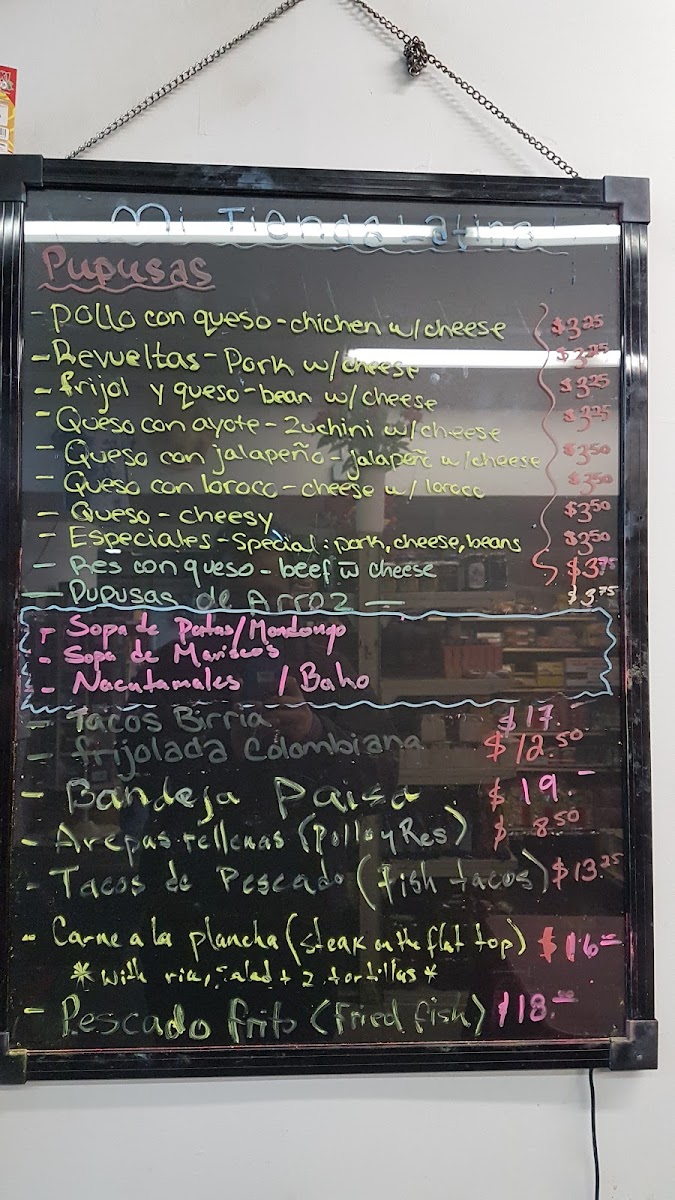 Mi Tienda Latina!
Pupusas
- Pollo con queso - chichen w/cheese $3.25
- Revueltas - Pork w/cheese $3.25
- frijol y queso - bean w/cheese $3.25
- Queso con ayote - Zuchini w/cheese $3.25
- Queso con jalapeño - jalapeñ w/cheese $3.50
- Queso con loroco - cheese w/ loroco $3.50
- Queso - cheesy $3.50
- Especiales - special: pork, cheese, beans $3.50
- Res con queso - beef w cheese $3.75
- Pupusas de Arroz - $3.75
- Sopa de Patas/Mondongo
- Sopa de Mariscos
- Nacatamales / Baho
- Tacos Birria $17.-
- frijolada Colombiana $12.50
- Bandeja Paisa $19.-
- Arepas rellenas (Pollo y Res) $8.50
- Tacos de Pescado (fish tacos) $13.25
- Carne a la plancha (steak on the flat top) $16-
* with rice, salad + 2 tortillas *
- Pescado frito (Fried fish) $18.-